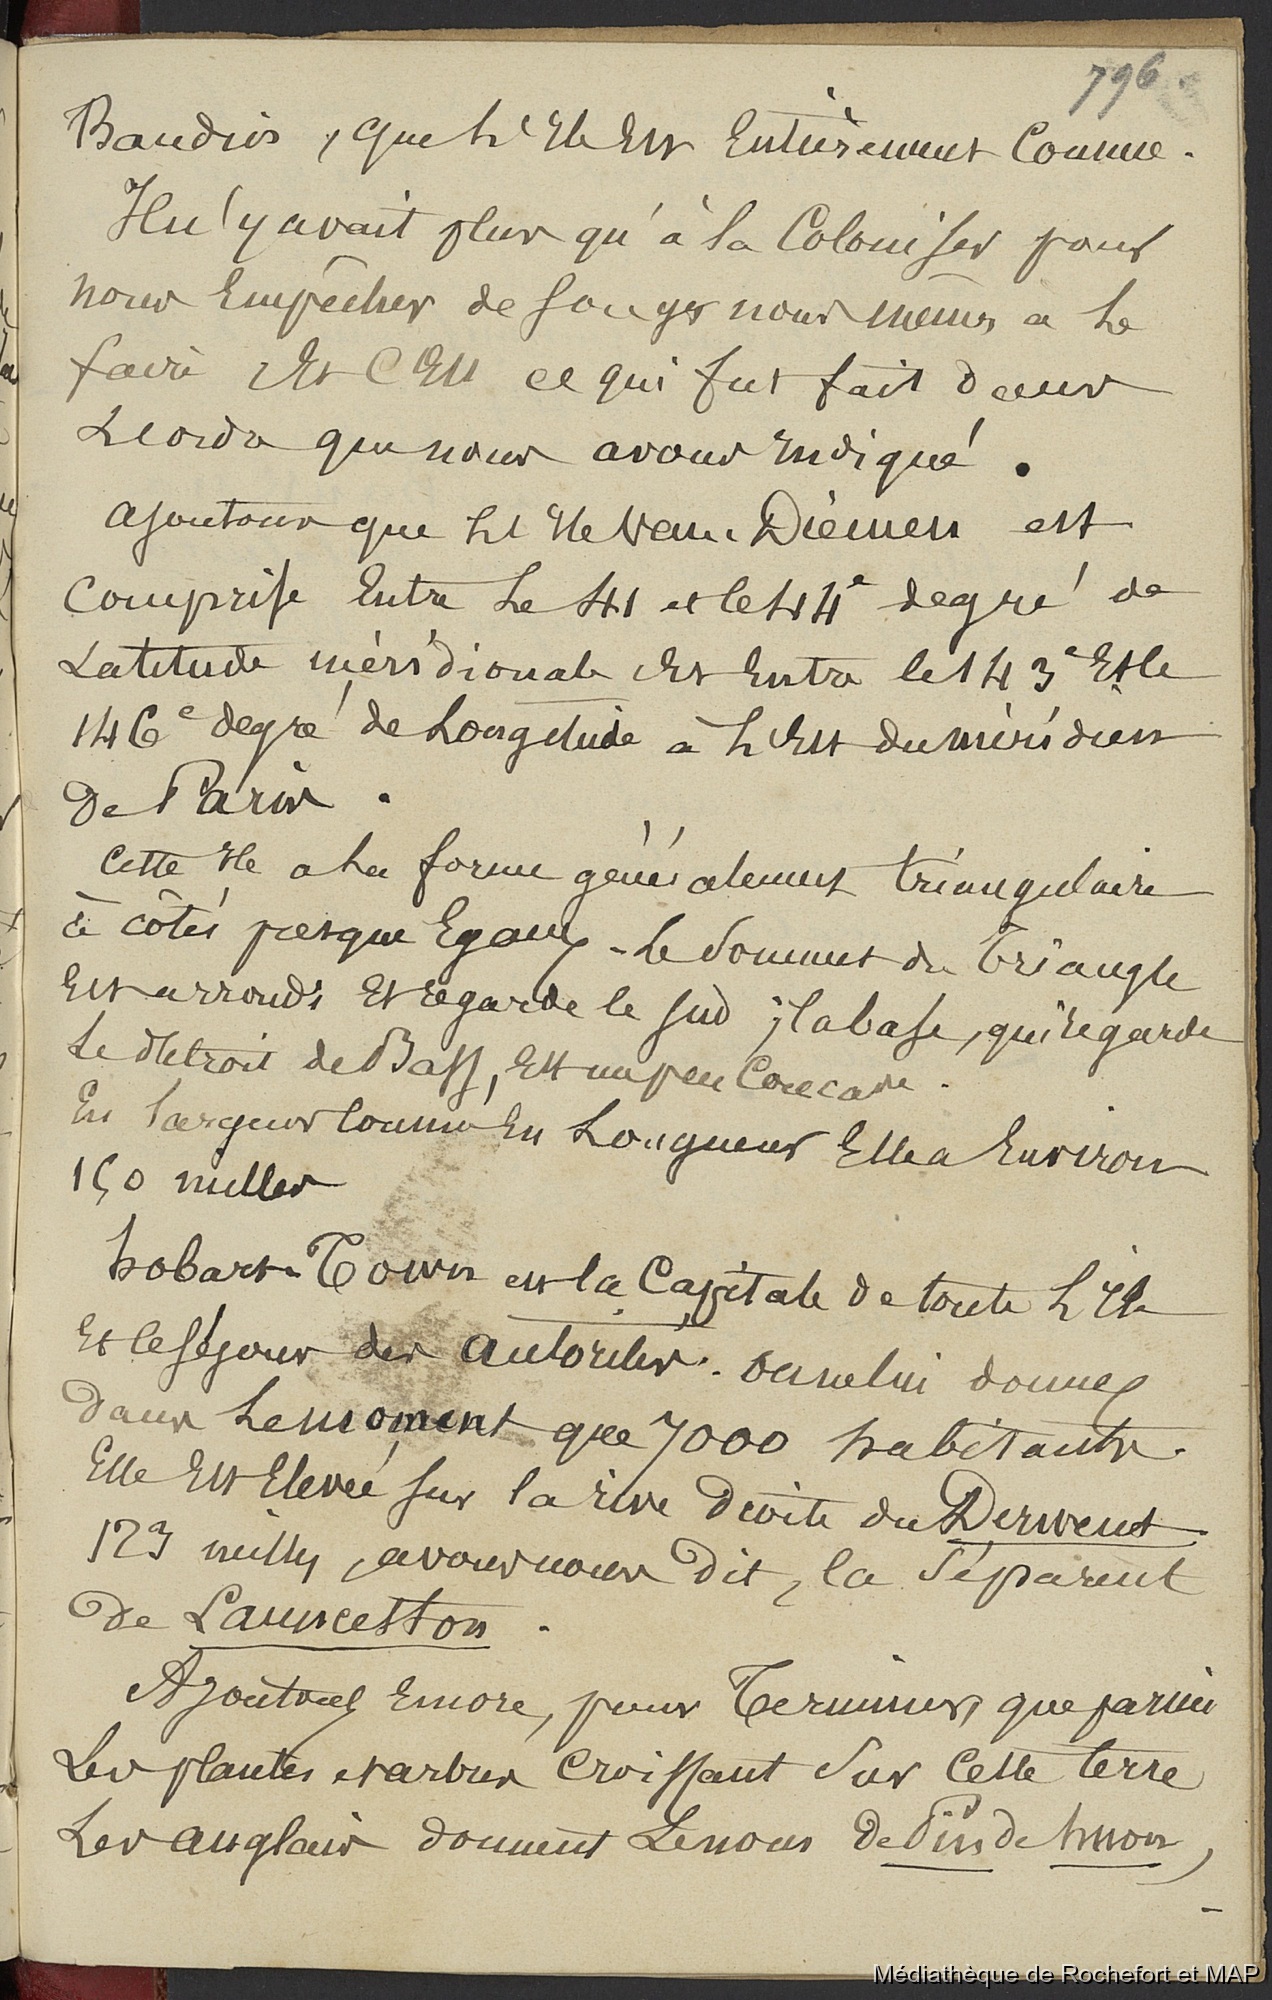 796
Baudin, que l'Ile Est Entièrement Connue.
Il n'y avait plus qu'à la Coloniser pour
nous Empêcher de songer nous mêmes a le
faire Et C'Est ce qui fut fait dans
L'ordre que nous avons Indiqué.
ajoutons que L'Ile Van-Diémen est
Comprise Entre Le 41 et le 44e degré de
Latitude méridionale Et Entre le 143e Et le
146e degré de Longitude à L'Est du méridien
de Paris.
Cette Ile a La forme généralement triangulaire
à côtés presque Egaux - Le Sommet du triangle
Est arrondi Et regarde le sud ; la base, qui regarde
Le détroit de Bass, Est un peu Concave.
En Largeur Comme En Longueur Elle a Environ
150 milles
hobart-Town est la Capitale de toute L'Ile
Et le séjour des autorités. on ne lui donne
dans Le moment que 7000 habitants.
Elle Est Elevée sur la rive droite du Derwent
123 milles, avons nous dit, la séparent
de Launceston.
Ajoutons Encore, pour Terminer, que parmi
Les plantes et arbres Croissant sur Cette terre
Les anglais donnent Le nom de Pin de huon,
Médiathèque de Rochefort et MAP